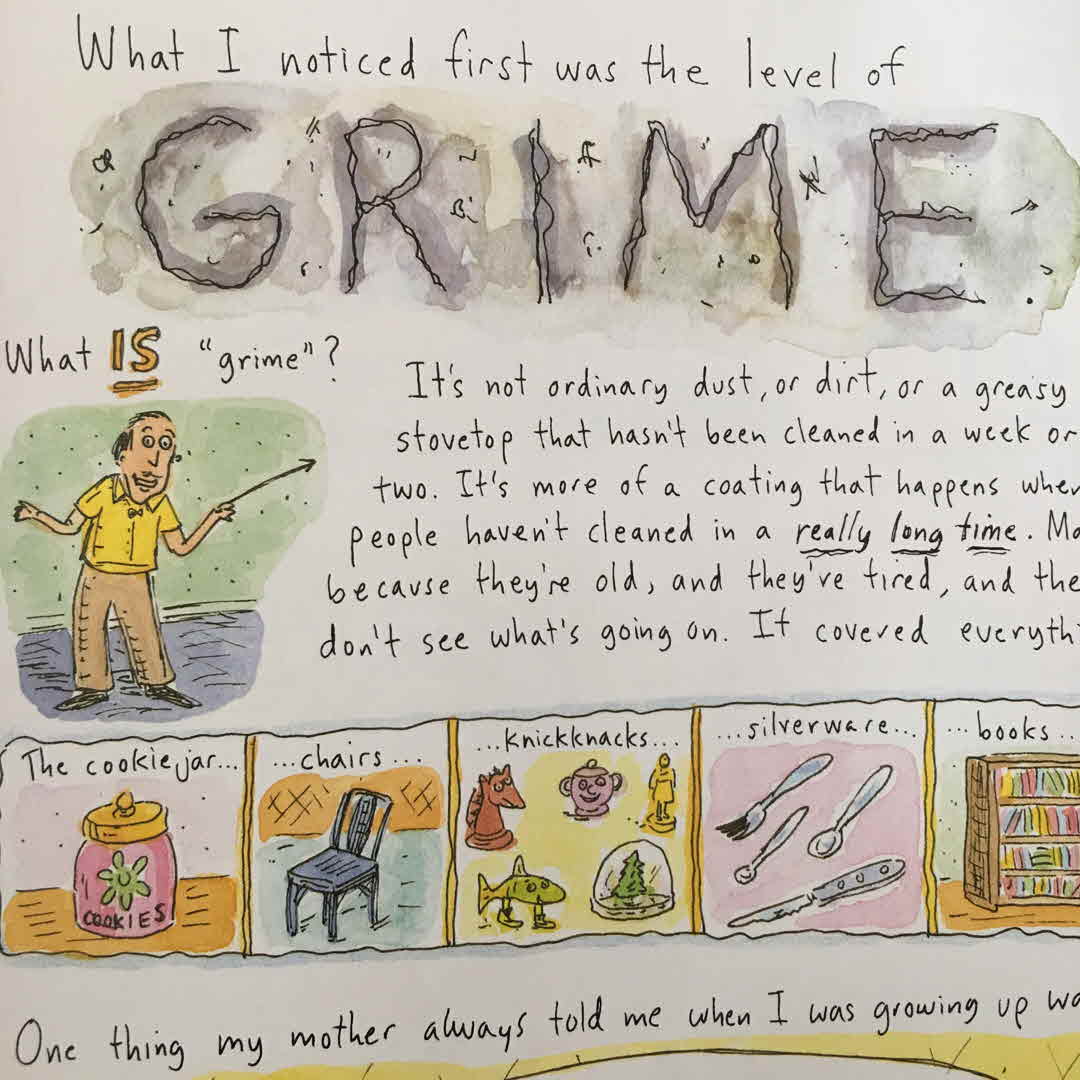 What I noticed first was the level of
GRIME
What IS "grime"?
It's not ordinary dust, or dirt, or a greasy
stovetop that hasn't been cleaned in a week or
two. It's more of a coating that happens when
people haven't cleaned in a really long time.
because they're old, and they've tired, and
don't see what's going on. It covered
The cookie jar...
COOKIES
...chairs...
...knickknacks...
...silverware...
...books...
One thing my mother always told me when I was growing up